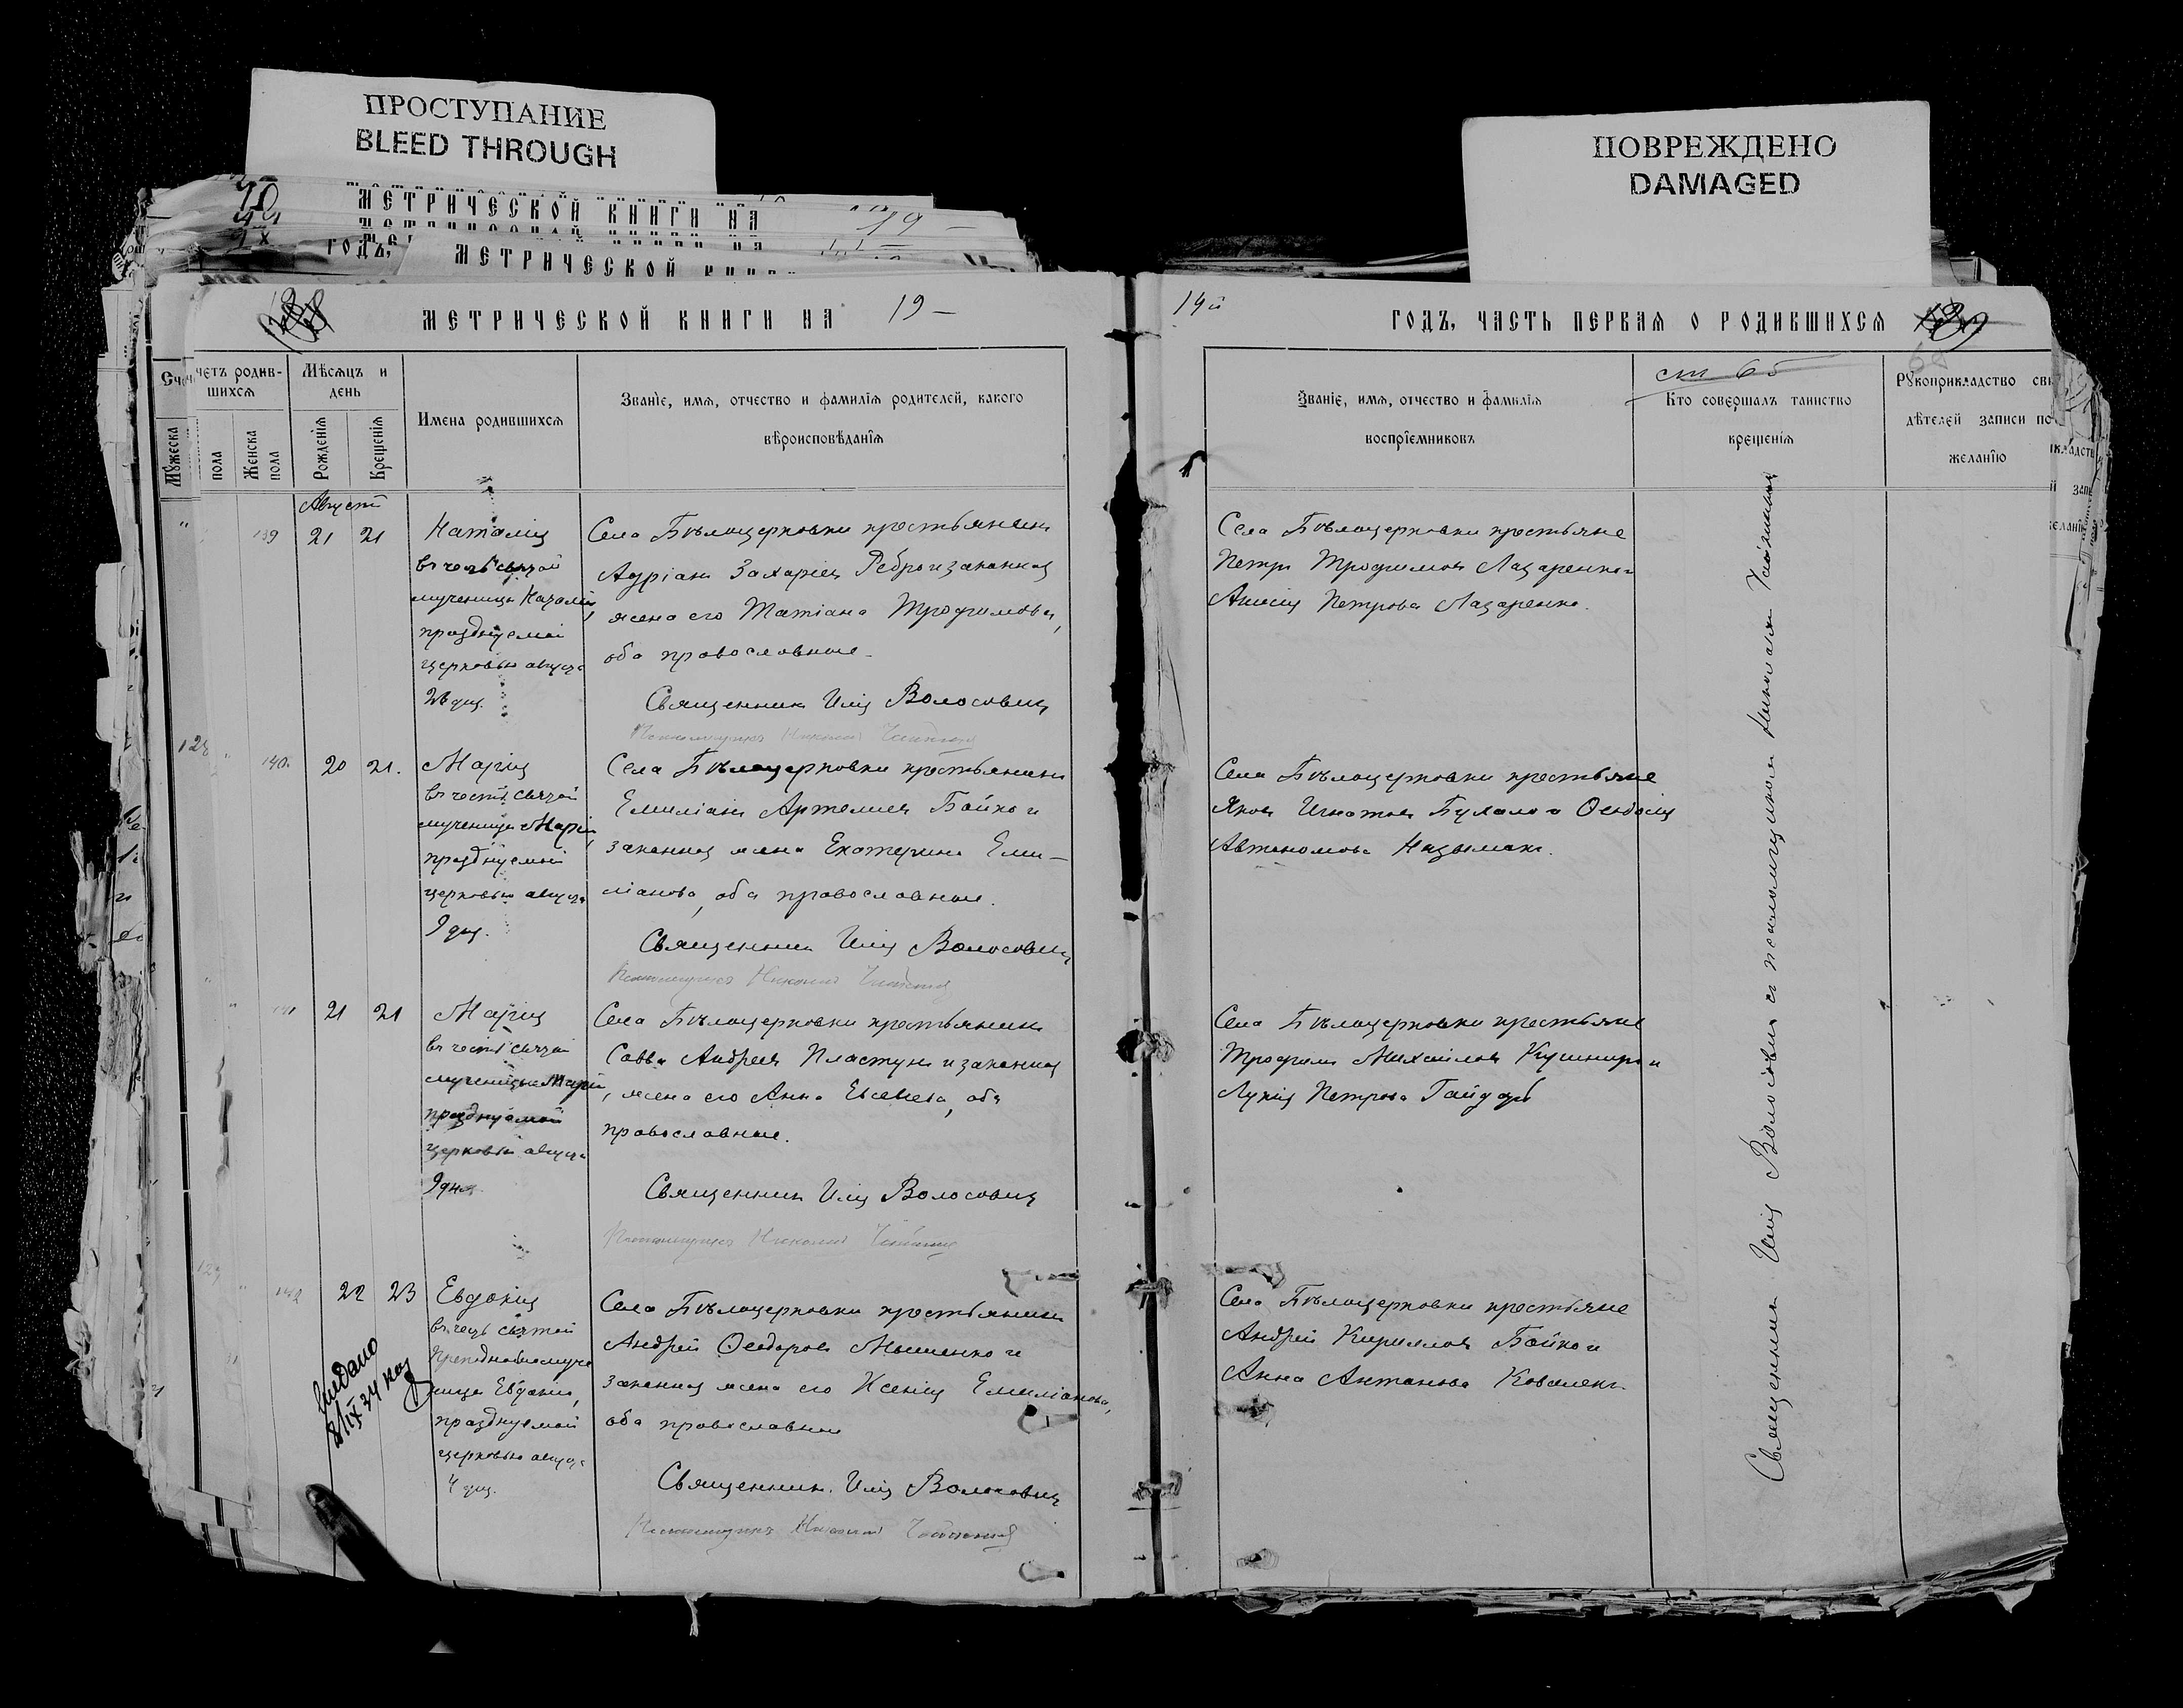 ПРОСТУПАНИЕ
BLEED THROUGH
ПОВРЕЖДЕНО
DAMAGED
МЕТРИЧЕСКОЙ КНИГИ НА 19
ГОДЪ,
МЕТРИЧЕСКОЙ
МЕТРИЧЕСКОЙ КНИГИ НА 19 —
Счетъ родив-
шихся
Мужеска
пола
Женска
пола
Мѣсяцъ и
день
Рожденія
Крещенія
Имена родившихся
Званіе, имя, отчество и фамилія родителей, какого
вѣроисповѣданія
Августъ
139 21 21
Наталія
въ честь святой
мученицы Наталіи,
празднуемой
церковью августа
26 дня.
Села Бѣлоцерковки крестьянинъ
Адріанъ Захаріевъ Ребро и законная
жена его Татіана Трофимова,
оба православные.
Священникъ Илія Волосовичъ
Псаломщикъ Николай
140 20 21.
Марія
въ честь святой
мученицы Маріи,
празднуемой
церковью августа
9 дня.
Села Бѣлоцерковки крестьянинъ
Емиліанъ Артемiевъ Бойко и
законная жена Екатерина Еми-
ліанова, оба православные.
Священникъ Илія Волосовичъ
Псаломщикъ Николай
141 21 21
Марія
въ честь святой
мученицы Маріи,
празднуемой
церковью августа
9 дня
Села Бѣлоцерковки крестьянинъ
Савва Андреевъ Пластунъ и законная
жена его Анна Евсевіева, оба
православные.
Священникъ Илія Волосовичъ
Псаломщикъ Николай
142 22 23
Евдокія
въ честь святой
Преподобномуче
ницы Евдокіи,
празднуемой
церковью августа
4 дня.
Села Бѣлоцерковки крестьянинъ
Андрей Ѳеодоровъ и
законная жена его Ксенія Емиліанова,
оба православные
Священникъ Илія Волосовичъ
Псаломщикъ Николай
Выдано
8/IX 24
14й
ГОДЪ, ЧАСТЬ ПЕРВАЯ О РОДИВШИХСЯ
Званіе, имя, отчество и фамилія
воспріемниковъ
Кто совершалъ таинство
крещенія
Рукоприкладство сви
дѣтелей записи по
желанію
Села Бѣлоцерковки крестьяне
Петръ Трофимовъ Лазаренко и
Анисія Петрова Лазаренко.
Села Бѣлоцерковки крестьяне
Яковъ Игнатовъ и Ѳеодосія
Автономова
Села Бѣлоцерковки крестьяне
Трофимъ Михаиловъ Кушниръ и
Лукія Петрова Гайдаръ
Села Бѣлоцерковки крестьяне
Андрей Кирилловъ Бойко и
Анна Антонова Коваленко
Священникъ Илія Волосовичъ съ псаломщикомъ Николаемъ